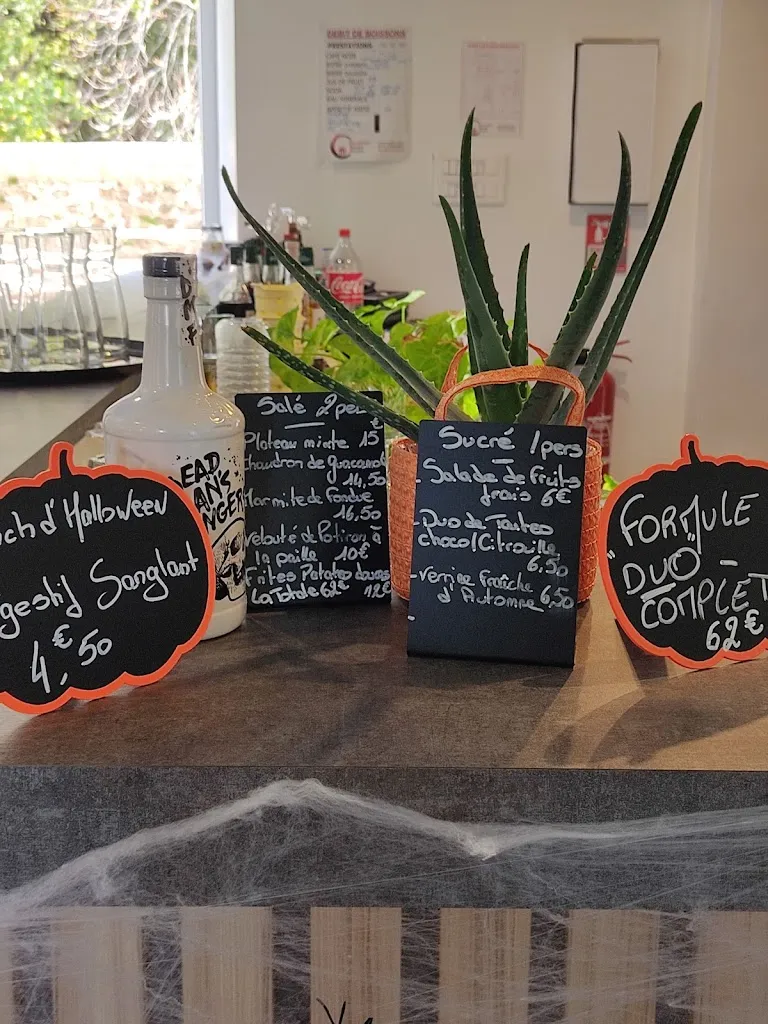 DEBIT DE BOISSONS
Coca-Cola
Salé 2 pers
Plateau mixte 15€
Chaudron de guacamole
14,50
Marmite de fondue
16,50
Velouté de Potiron à
la paille 10€
Frites Patates douces
La Totale 62€ 12€
Sucré /pers
- Salade de fruits
frais 6€
- Duo de Tartes
chocol/Citrouille
6.50
- Verrine Fraîche
d'Automne 6,50
ch d'Halloween
gestif Sanglant
4,€50
"FORMULE
DUO" -
COMPLET
62€
DMF
EAD
AN'S
NGER